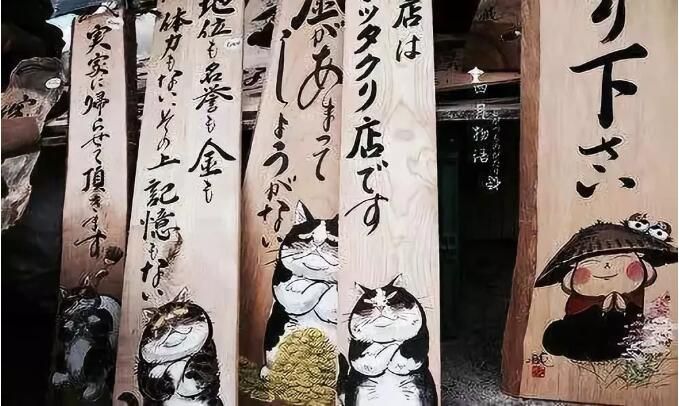 り下さい
店は
ッタクリ店です
金があまって
しょうがない
地位も名誉も金も
体力もないその上記憶もない
実家に帰らせて頂きます
四月物语
しがつものがたり